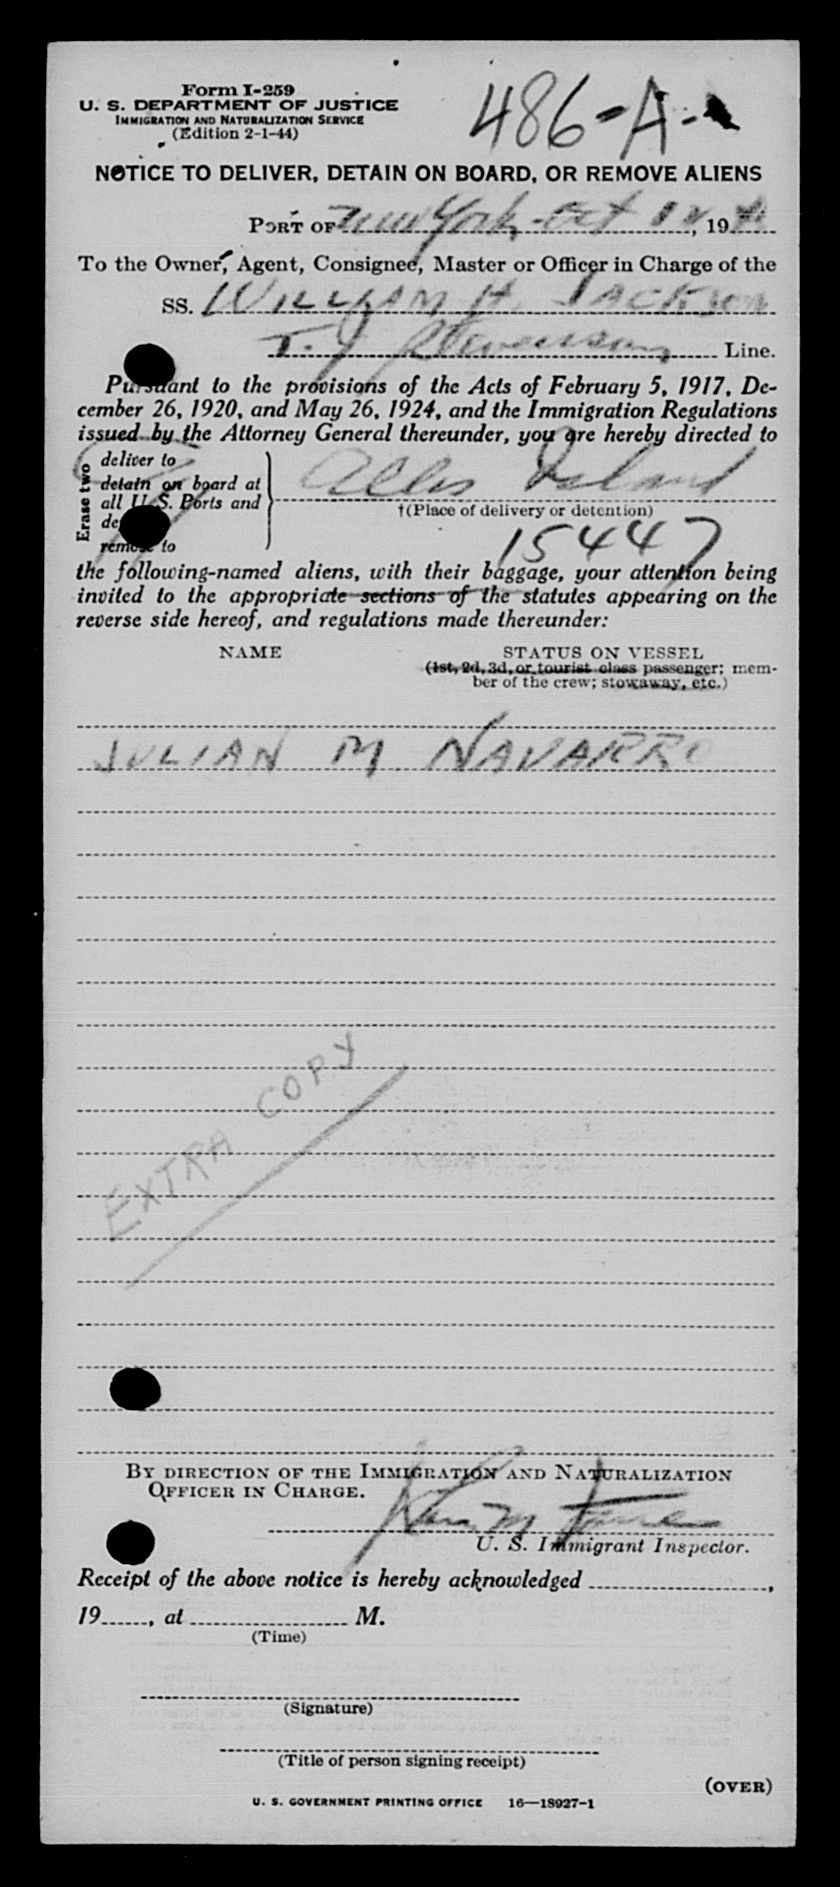 Form I-259
U. S. DEPARTMENT OF JUSTICE
IMMIGRATION AND NATURALIZATION SERVICE
(Edition 2-1-44)
486-A-
NOTICE TO DELIVER, DETAIN ON BOARD, OR REMOVE ALIENS
PORT OF New York, Oct 12, 19
To the Owner, Agent, Consignee, Master or Officer in Charge of the
SS. WILLIAM H. JACKSON
T. J Stevenson Line.
Pursuant to the provisions of the Acts of February 5, 1917, De-
cember 26, 1920, and May 26, 1924, and the Immigration Regulations
issued by the Attorney General thereunder, you are hereby directed to
Erase two
deliver to
detain on board at
all U. S. Ports and
remove to
Ellis Island
†(Place of delivery or detention)
15447
the following-named aliens, with their baggage, your attention being
invited to the appropriate sections of the statutes appearing on the
reverse side hereof, and regulations made thereunder:
NAME STATUS ON VESSEL
(1st, 2d, 3d, or tourist class passenger; mem-
ber of the crew; stowaway, etc.)
JULIAN M NAVARRO
EXTRA COPY
BY DIRECTION OF THE IMMIGRATION AND NATURALIZATION
OFFICER IN CHARGE.
U. S. Immigrant Inspector.
Receipt of the above notice is hereby acknowledged ,
19 , at M.
(Time)
(Signature)
(Title of person signing receipt)
(OVER)
U. S. GOVERNMENT PRINTING OFFICE 16—18927-1